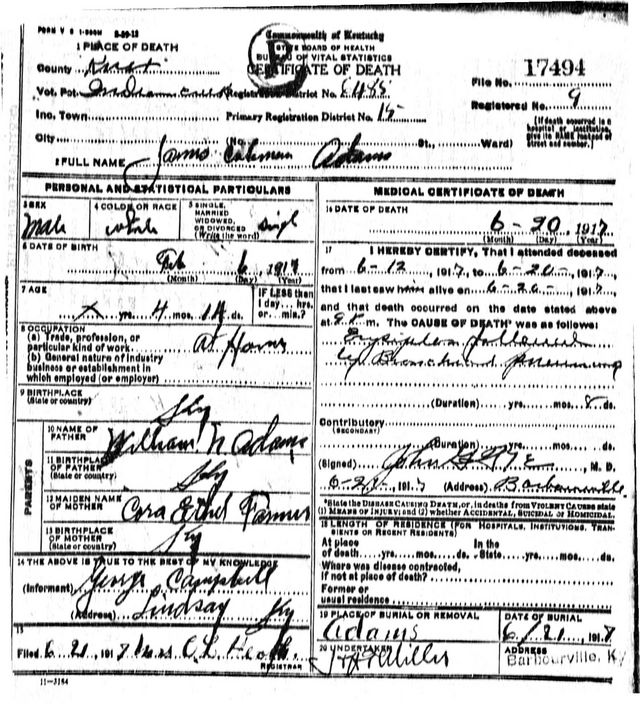 FORM V S 1-200M 8-20-13
Commonwealth of Kentucky
STATE BOARD OF HEALTH
BUREAU OF VITAL STATISTICS
CERTIFICATE OF DEATH
1 PLACE OF DEATH
County Knox
File No. 17494
Vot. Pct. Registration District No.
Registered No. 9
Inc. Town Primary Registration District No. 15
(If death occurred in a hospital or institution, give its NAME instead of street and number.)
City (No. St., Ward)
2 FULL NAME James Coleman Adams
PERSONAL AND STATISTICAL PARTICULARS
3 SEX Male
4 COLOR OR RACE white
5 SINGLE, MARRIED WIDOWED, OR DIVORCED (Write the word) Singl
6 DATE OF BIRTH
Feb 6, 1917
(Month) (Day) (Year)
7 AGE
yrs. 4 mos. 14 ds.
IF LESS than 1 day... hrs. or... min.?
8 OCCUPATION
(a) Trade, profession, or particular kind of work. At Home
(b) General nature of industry business or establishment in which employed (or employer)
9 BIRTHPLACE
(State or country) Ky
PARENTS
10 NAME OF FATHER William N Adams
11 BIRTHPLACE OF FATHER (State or country) Ky
12 MAIDEN NAME OF MOTHER Cora Ethel Farmer
13 BIRTHPLACE OF MOTHER (State or country) Ky
14 THE ABOVE IS TRUE TO THE BEST OF MY KNOWLEDGE
(Informant) George Campbell
(Address) Lindsay Ky
15
Filed 6 21, 1918 REGISTRAR
11-3184
MEDICAL CERTIFICATE OF DEATH
16 DATE OF DEATH
6-20, 1917
(Month) (Day) (Year)
17 I HEREBY CERTIFY, That I attended deceased
from 6-12, 1917, to 6-20-, 1917,
that I last saw him alive on 6-20-, 1917,
and that death occurred on the date stated above
at m. The CAUSE OF DEATH* was as follows:
Erysipelas followed
by Bronchial pneumonia
(Duration) yrs. mos. 8 ds.
Contributory
(SECONDARY)
(Duration) yrs. mos. ds.
(Signed) John G , M. D.
1917 (Address) Barbourville
*State the DISEASE CAUSING DEATH, or, in deaths from VIOLENT CAUSES state (1) MEANS OF INJURY; and (2) whether ACCIDENTAL, SUICIDAL or HOMICIDAL.
18 LENGTH OF RESIDENCE (FOR HOSPITALS, INSTITUTIONS, TRANSIENTS OR RECENT RESIDENTS)
At place of death yrs. mos. ds. In the State yrs. mos. ds.
Where was disease contracted, If not at place of death?
Former or usual residence
19 PLACE OF BURIAL OR REMOVAL
Adams
DATE OF BURIAL
6/21, 1918
20 UNDERTAKER
Miller
ADDRESS
Barbourville, Ky